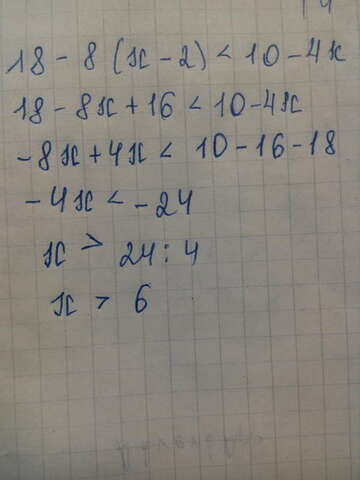 18 - 8 (x - 2) < 10 - 4x
18 - 8x + 16 < 10 - 4x
-8x + 4x < 10 - 16 - 18
-4x < -24
x > 24 : 4
x > 6